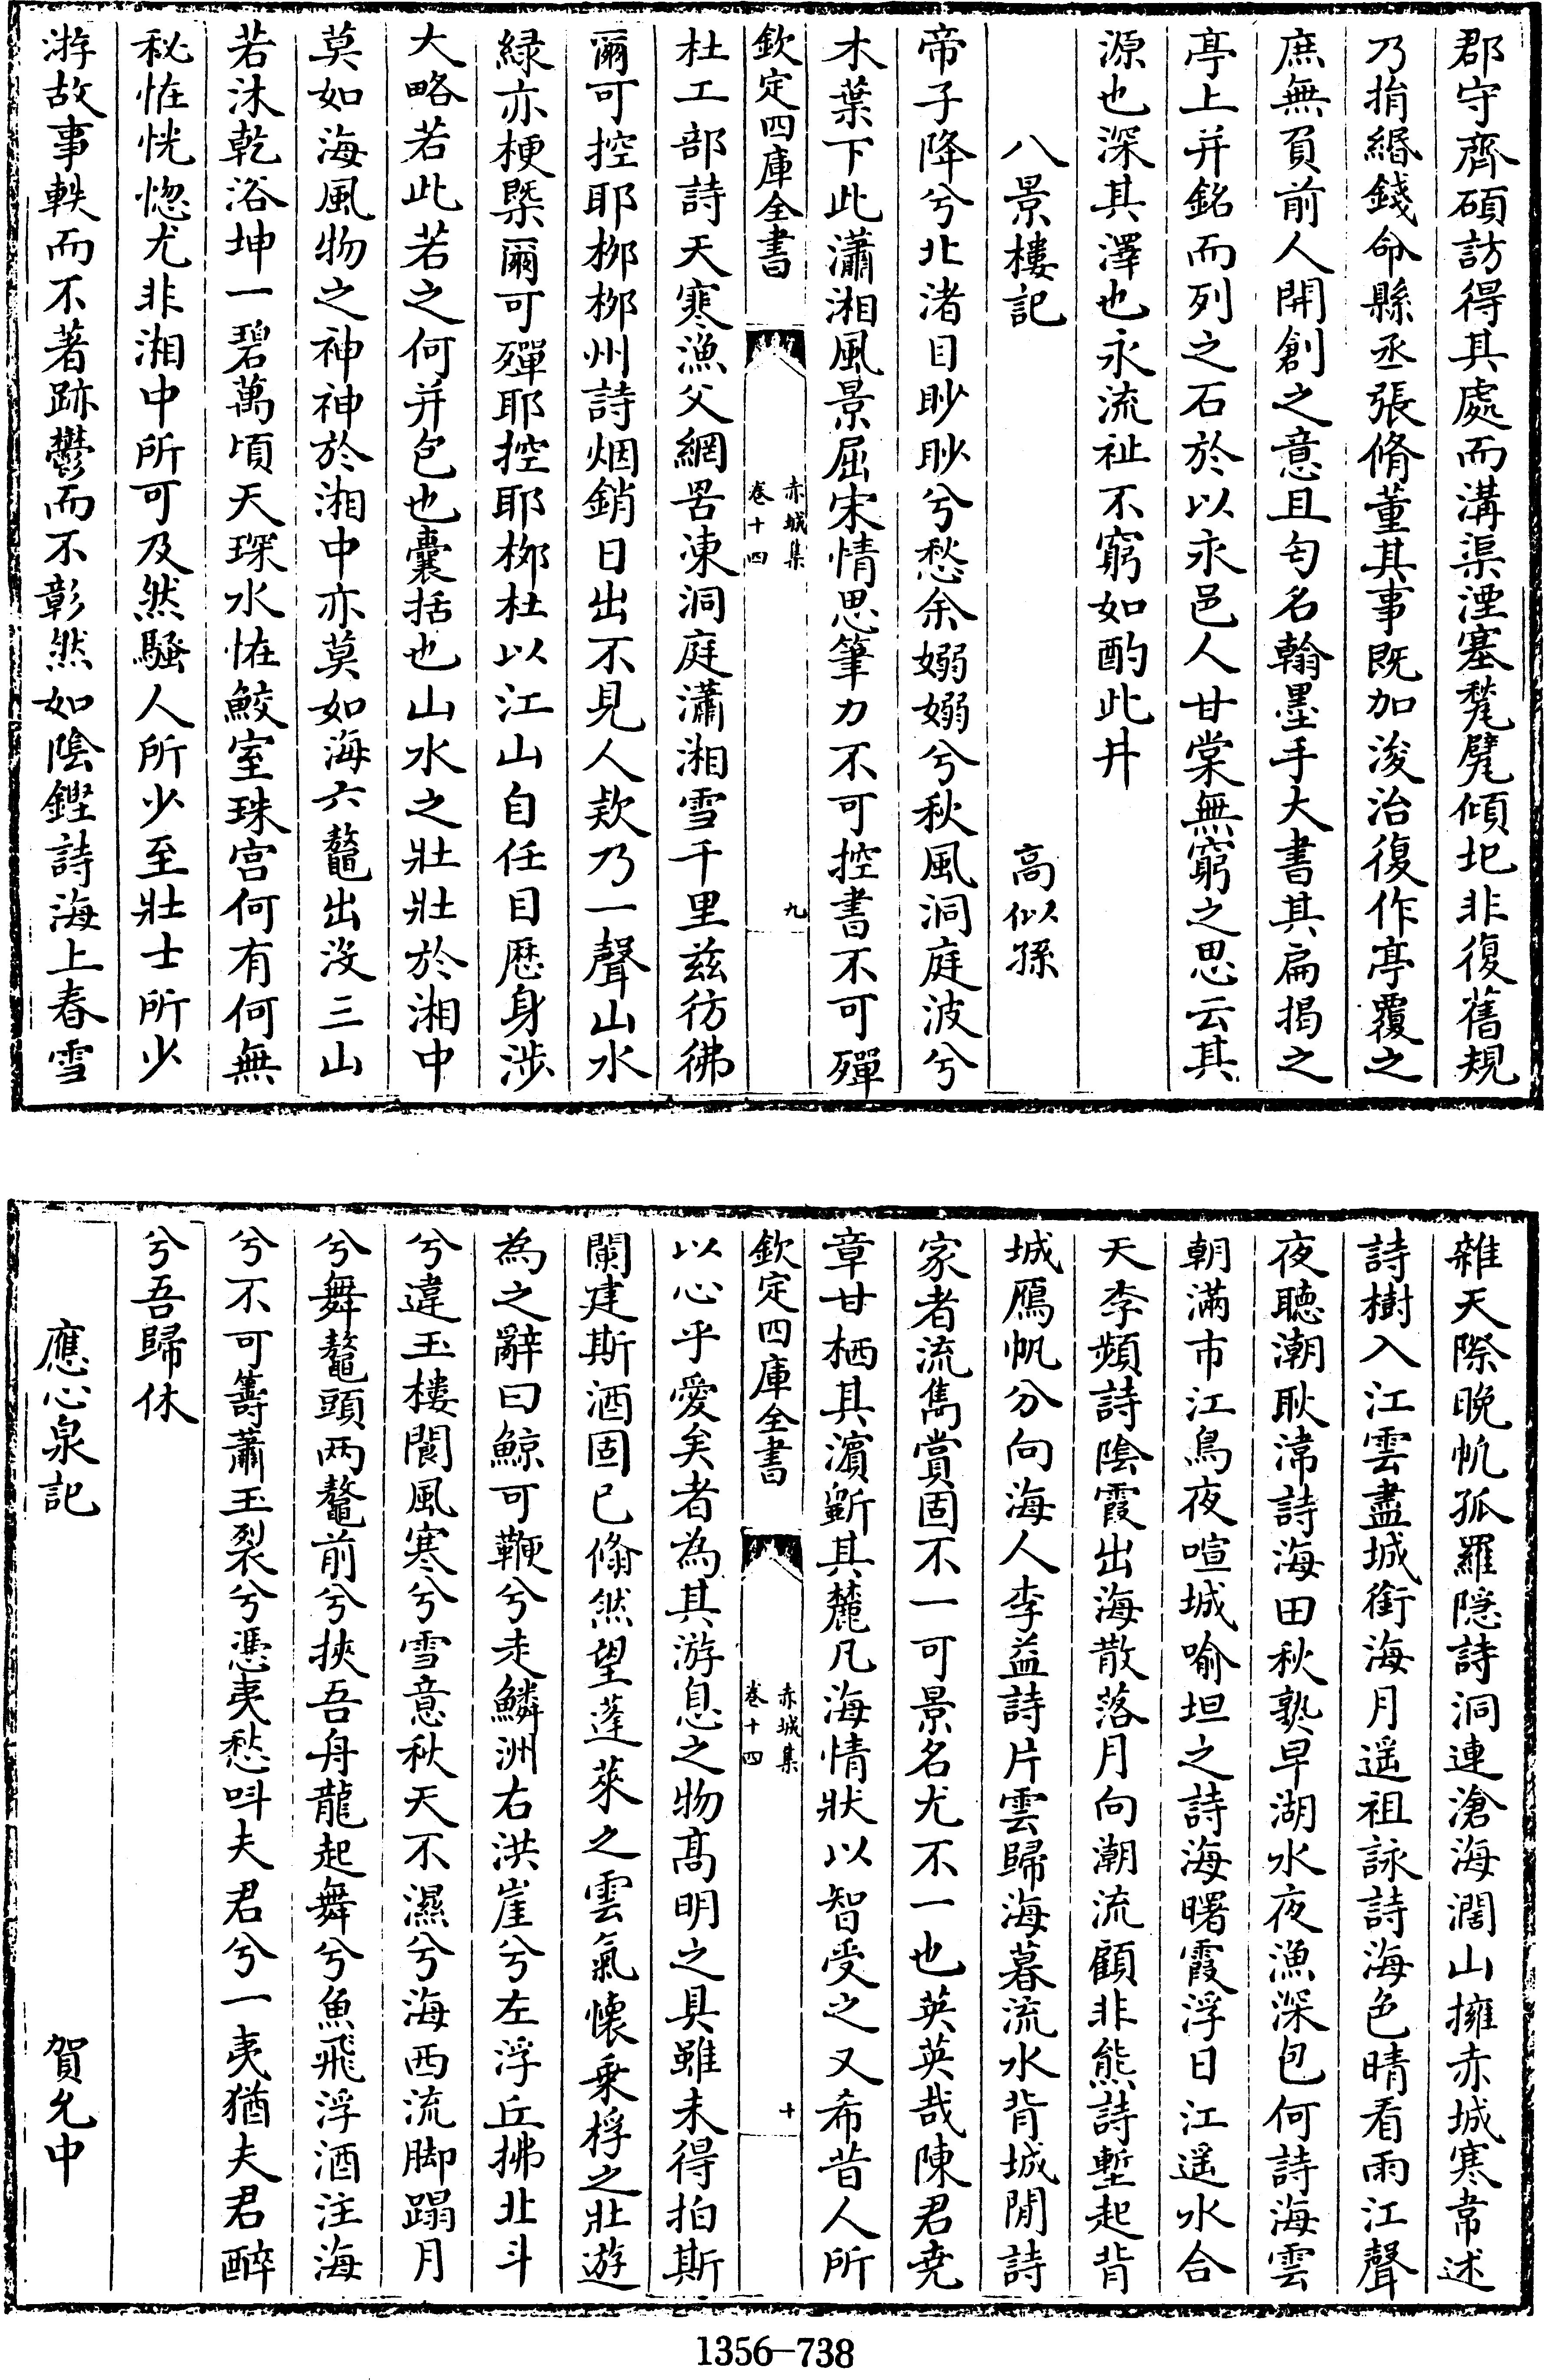 郡守齊碩訪得其處而溝渠湮塞甃甓傾圯非復舊規
乃捐緡錢命縣丞張脩董其事既加浚治復作亭覆之
庶無負前人開創之意且匄名翰墨手大書其扁揭之
亭上并銘而列之石於以永邑人甘棠無窮之思云其
源也深其澤也永流祉不窮如酌此井
八景樓記 高似孫
帝子降兮北渚目眇眇兮愁余嫋嫋兮秋風洞庭波兮
木葉下此瀟湘風景屈宋情思筆力不可控書不可殫
欽定四庫全書 赤城集 卷十四 九
杜工部詩天寒漁父網罟凍洞庭瀟湘雪千里兹彷彿
爾可控耶栁栁州詩烟銷日出不見人欵乃一聲山水
緑亦梗槩爾可殫耶控耶栁杜以江山自任目歴身渉
大略若此若之何并包也囊括也山水之壯壯於湘中
莫如海風物之神神於湘中亦莫如海六鼇出沒三山
若沐乾浴坤一碧萬頃天琛水怪鮫室珠宫何有何無
秘怪恍惚尤非湘中所可及然騷人所少至壯士所少
游故事軼而不著跡鬱而不彰然如陰鏗詩海上春雪
雜天際晚帆孤羅隠詩洞連滄海濶山擁赤城寒韋述
詩樹入江雲盡城銜海月遥祖詠詩海色晴看雨江聲
夜聴潮耿湋詩海田秋熟早湖水夜漁深包何詩海雲
朝滿市江鳥夜喧城喻坦之詩海曙霞浮日江遥水合
天李頻詩陰霞出海散落月向潮流顧非熊詩塹起背
城鴈帆分向海人李益詩片雲歸海暮流水背城閒詩
家者流雋賞固不一可景名尤不一也英英哉陳君堯
章甘栖其濵斲其麓凡海情狀以智受之又希昔人所
欽定四庫全書 赤城集 卷十四 十
以心乎愛矣者為其游息之物髙明之具雖未得拍斯
闌建斯酒固已翛然望蓬萊之雲氣懷乗桴之壯遊
為之辭曰鯨可鞭兮走鱗洲右洪崖兮左浮丘拂北斗
兮違玉樓閬風寒兮雪意秋天不濕兮海西流脚蹋月
兮舞鼇頭两鼇前兮挾吾舟龍起舞兮魚飛浮酒注海
兮不可籌蕭玉裂兮馮夷愁呌夫君兮一夷猶夫君醉
兮吾歸休
應心泉記 賀允中
1356-738